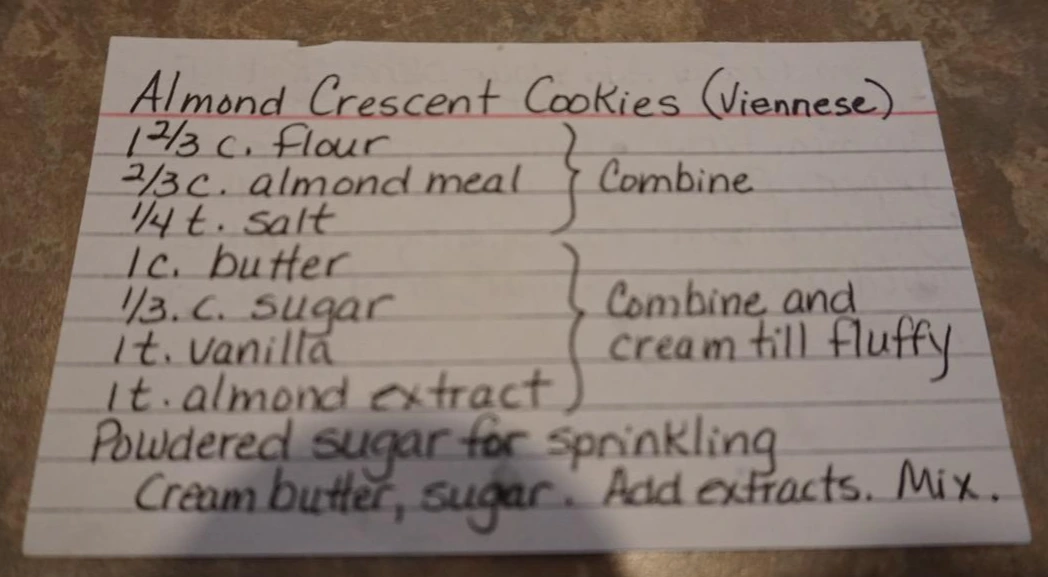 Almond Crescent Cookies (Viennese)
1 2/3 c. flour
2/3 c. almond meal } Combine
1/4 t. salt
1 c. butter
1/3. c. sugar } Combine and
1 t. vanilla cream till fluffy
1 t. almond extract
Powdered sugar for sprinkling
Cream butter, sugar. Add extracts. Mix.